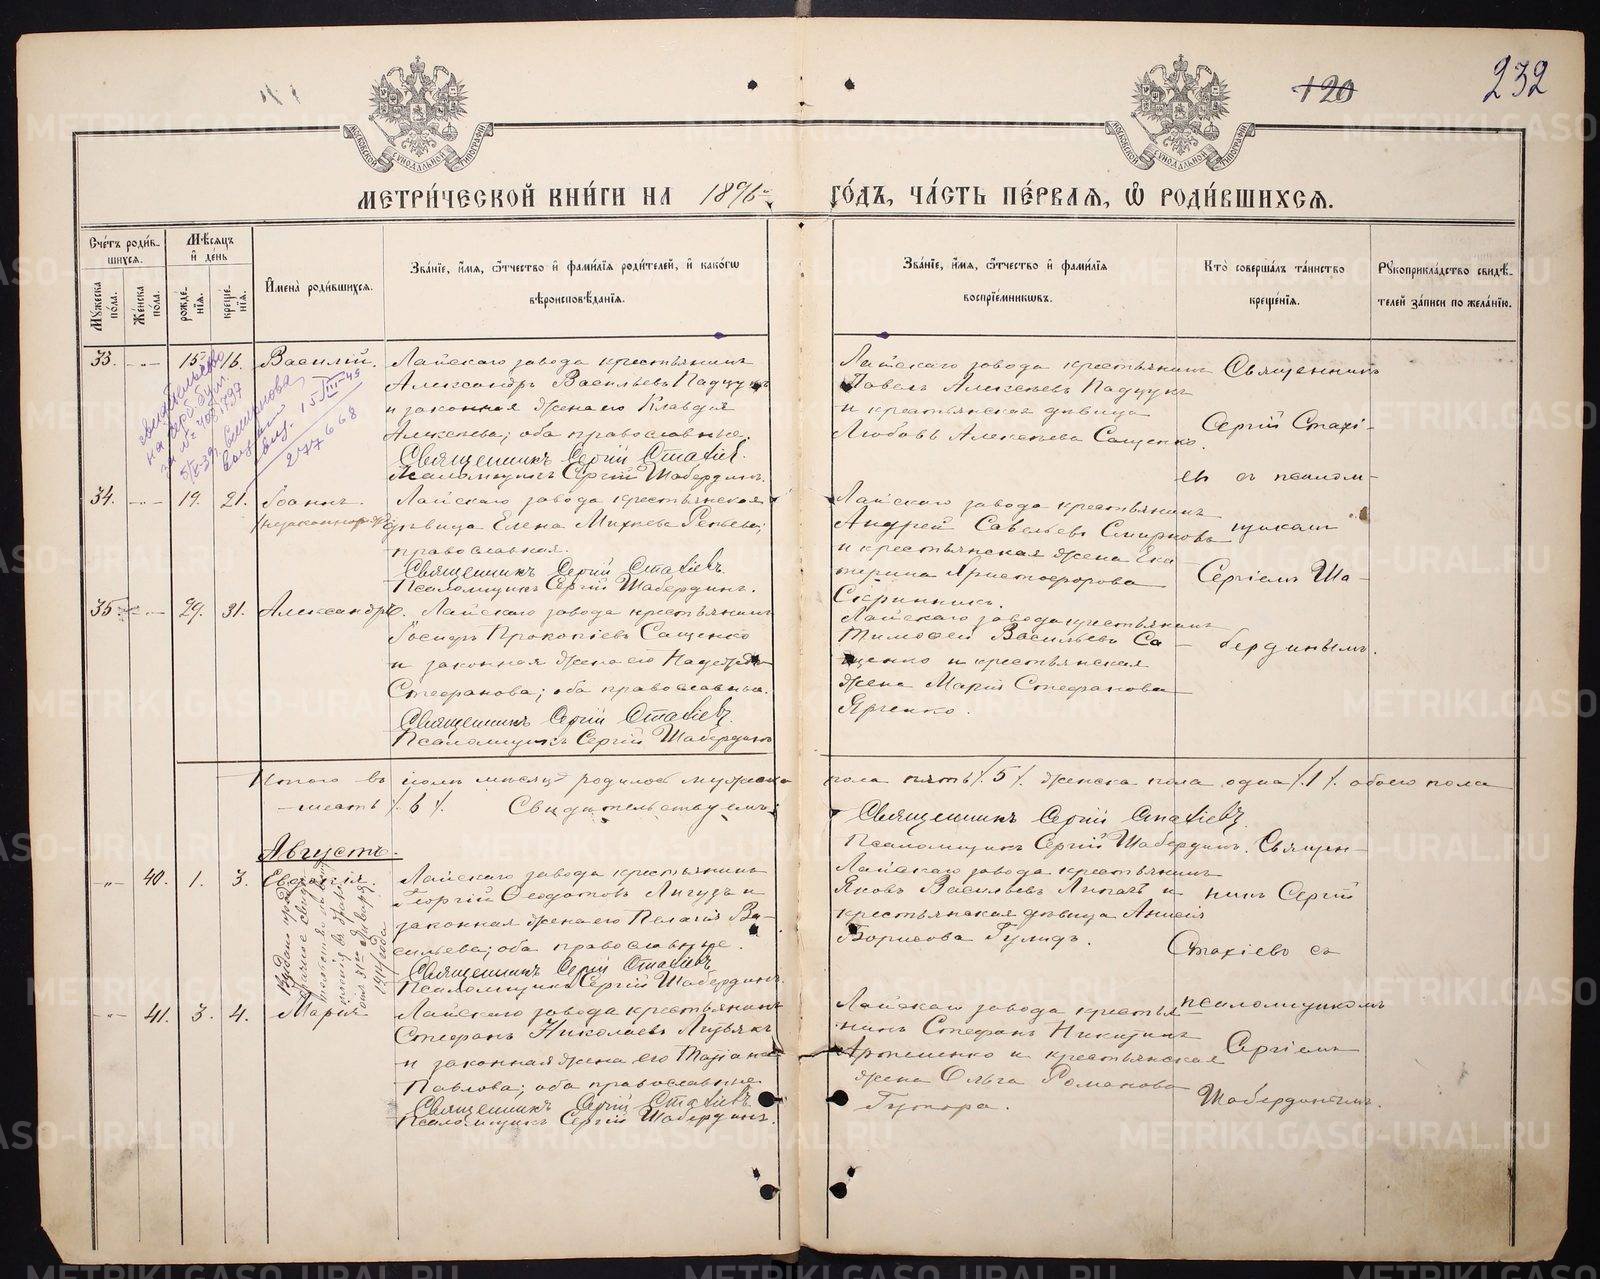 232
120
МОСКОВСКОЙ СѴНОДАЛЬНОЙ ТИПОГРАФІИ
МОСКОВСКОЙ СѴНОДАЛЬНОЙ ТИПОГРАФІИ
МЕТРИ́ЧЕСКОЙ КНИ́ГИ НА 1896 ГО́ДЪ, ЧА́СТЬ ПЕ́РВАЯ, Ѡ РОДИ́ВШИХСЯ.
Сче́тъ роди́в-
шихся.
Мꙋжеска по́ла.
Же́нска по́ла.
Мѣ́сяцъ
и҆ де́нь
рожде́-
нїѧ.
креще́-
нїѧ.
И҆мена̀ роди́вшихся.
Зва́нїе, и҆́мѧ, ѻ҆́тчество и҆ фами́лїѧ роди́телей, и҆ како́гѡ
вѣроисповѣ́данїѧ.
Зва́нїе, и҆́мѧ, ѻ҆́тчество и҆ фами́лїѧ
воспрїе́мникѡвъ.
Кто̀ соверша́лъ та́инство
креще́нїѧ.
Рꙋкоприкла́дство свидѣ́-
телей за́писи по жела́нїю.
33. -"- 15 16. Василій.
Лайскаго завода крестьянинъ
Александръ Васильевъ Падчукъ
и законная жена его Клавдія
Алексѣева; оба православные.
Священникъ Сергій Стахіев.
Псаломщикъ Сергій Шабердинъ.
Лайскаго завода крестьянинъ
Павелъ Алексѣевъ Падчукъ
и крестьянская дѣвица
Любовь Алексѣева Сащенко.
Священникъ
Сергій Стахі-
евъ съ псалом-
щикомъ
Сергіемъ Ша-
бердинымъ.
свидетельство
15 III-45
277668
34. -"- 19. 21. Іоаннъ
/незаконнорожд/
Лайскаго завода крестьянская
дѣвица Елена Михѣева Репьева;
православная.
Священникъ Сергій Стахіевъ.
Псаломщикъ Сергій Шабердинъ.
Лайскаго завода крестьянинъ
Андрей Савельевъ Смирновъ
и крестьянская жена Ека-
терина Христофорова
Скрипникъ.
35. -"- 29. 31. Александръ.
Лайскаго завода крестьянинъ
Іосифъ Прокопіевъ Сащенко
и законная жена его Надежда
Стефанова; оба православные.
Священникъ Сергій Стахіевъ.
Псаломщикъ Сергій Шабердинъ
Лайскаго завода крестьянинъ
Тимофей Васильевъ Са-
щенко и крестьянская
жена Марія Стефанова
Ярченко.
Итого въ іюлѣ мѣсяцѣ родилось мужеска пола пять /5/. женска пола одна /1/. обоего пола
шесть /6/. Свидѣтельствуемъ:
Священникъ Сергій Стахіевъ.
Псаломщикъ Сергій Шабердинъ.
Августъ.
-"- 40. 1. 3. Евдокія.
Лайскаго завода крестьянинъ
Георгій Ѳеодотовъ Лигузъ и
законная жена его Пелагія Ва-
сильева; оба православные.
Священникъ Сергій Стахіевъ
Псаломщикъ Сергій Шабердинъ.
Лайскаго завода крестьянинъ
Яковъ Васильевъ Липачъ и
крестьянская дѣвица Анисія
Борисова Гулидъ.
Священ-
никъ Сергій
Стахіевъ съ
псаломщикомъ
Сергіемъ
Шабердинымъ.
-"- 41. 3. 4. Марія
Лайскаго завода крестьянинъ
Стефанъ Николаевъ Лузьякъ
и законная жена его Татіана
Павлова; оба православные
Священникъ Сергій Стахіевъ
Псаломщикъ Сергій Шабердинъ.
Лайскаго завода крестья-
нинъ Стефанъ Никитинъ
Артеменко и крестьянская
жена Ольга Романова
Гутора.
METRIKI.GASO-URAL.RU